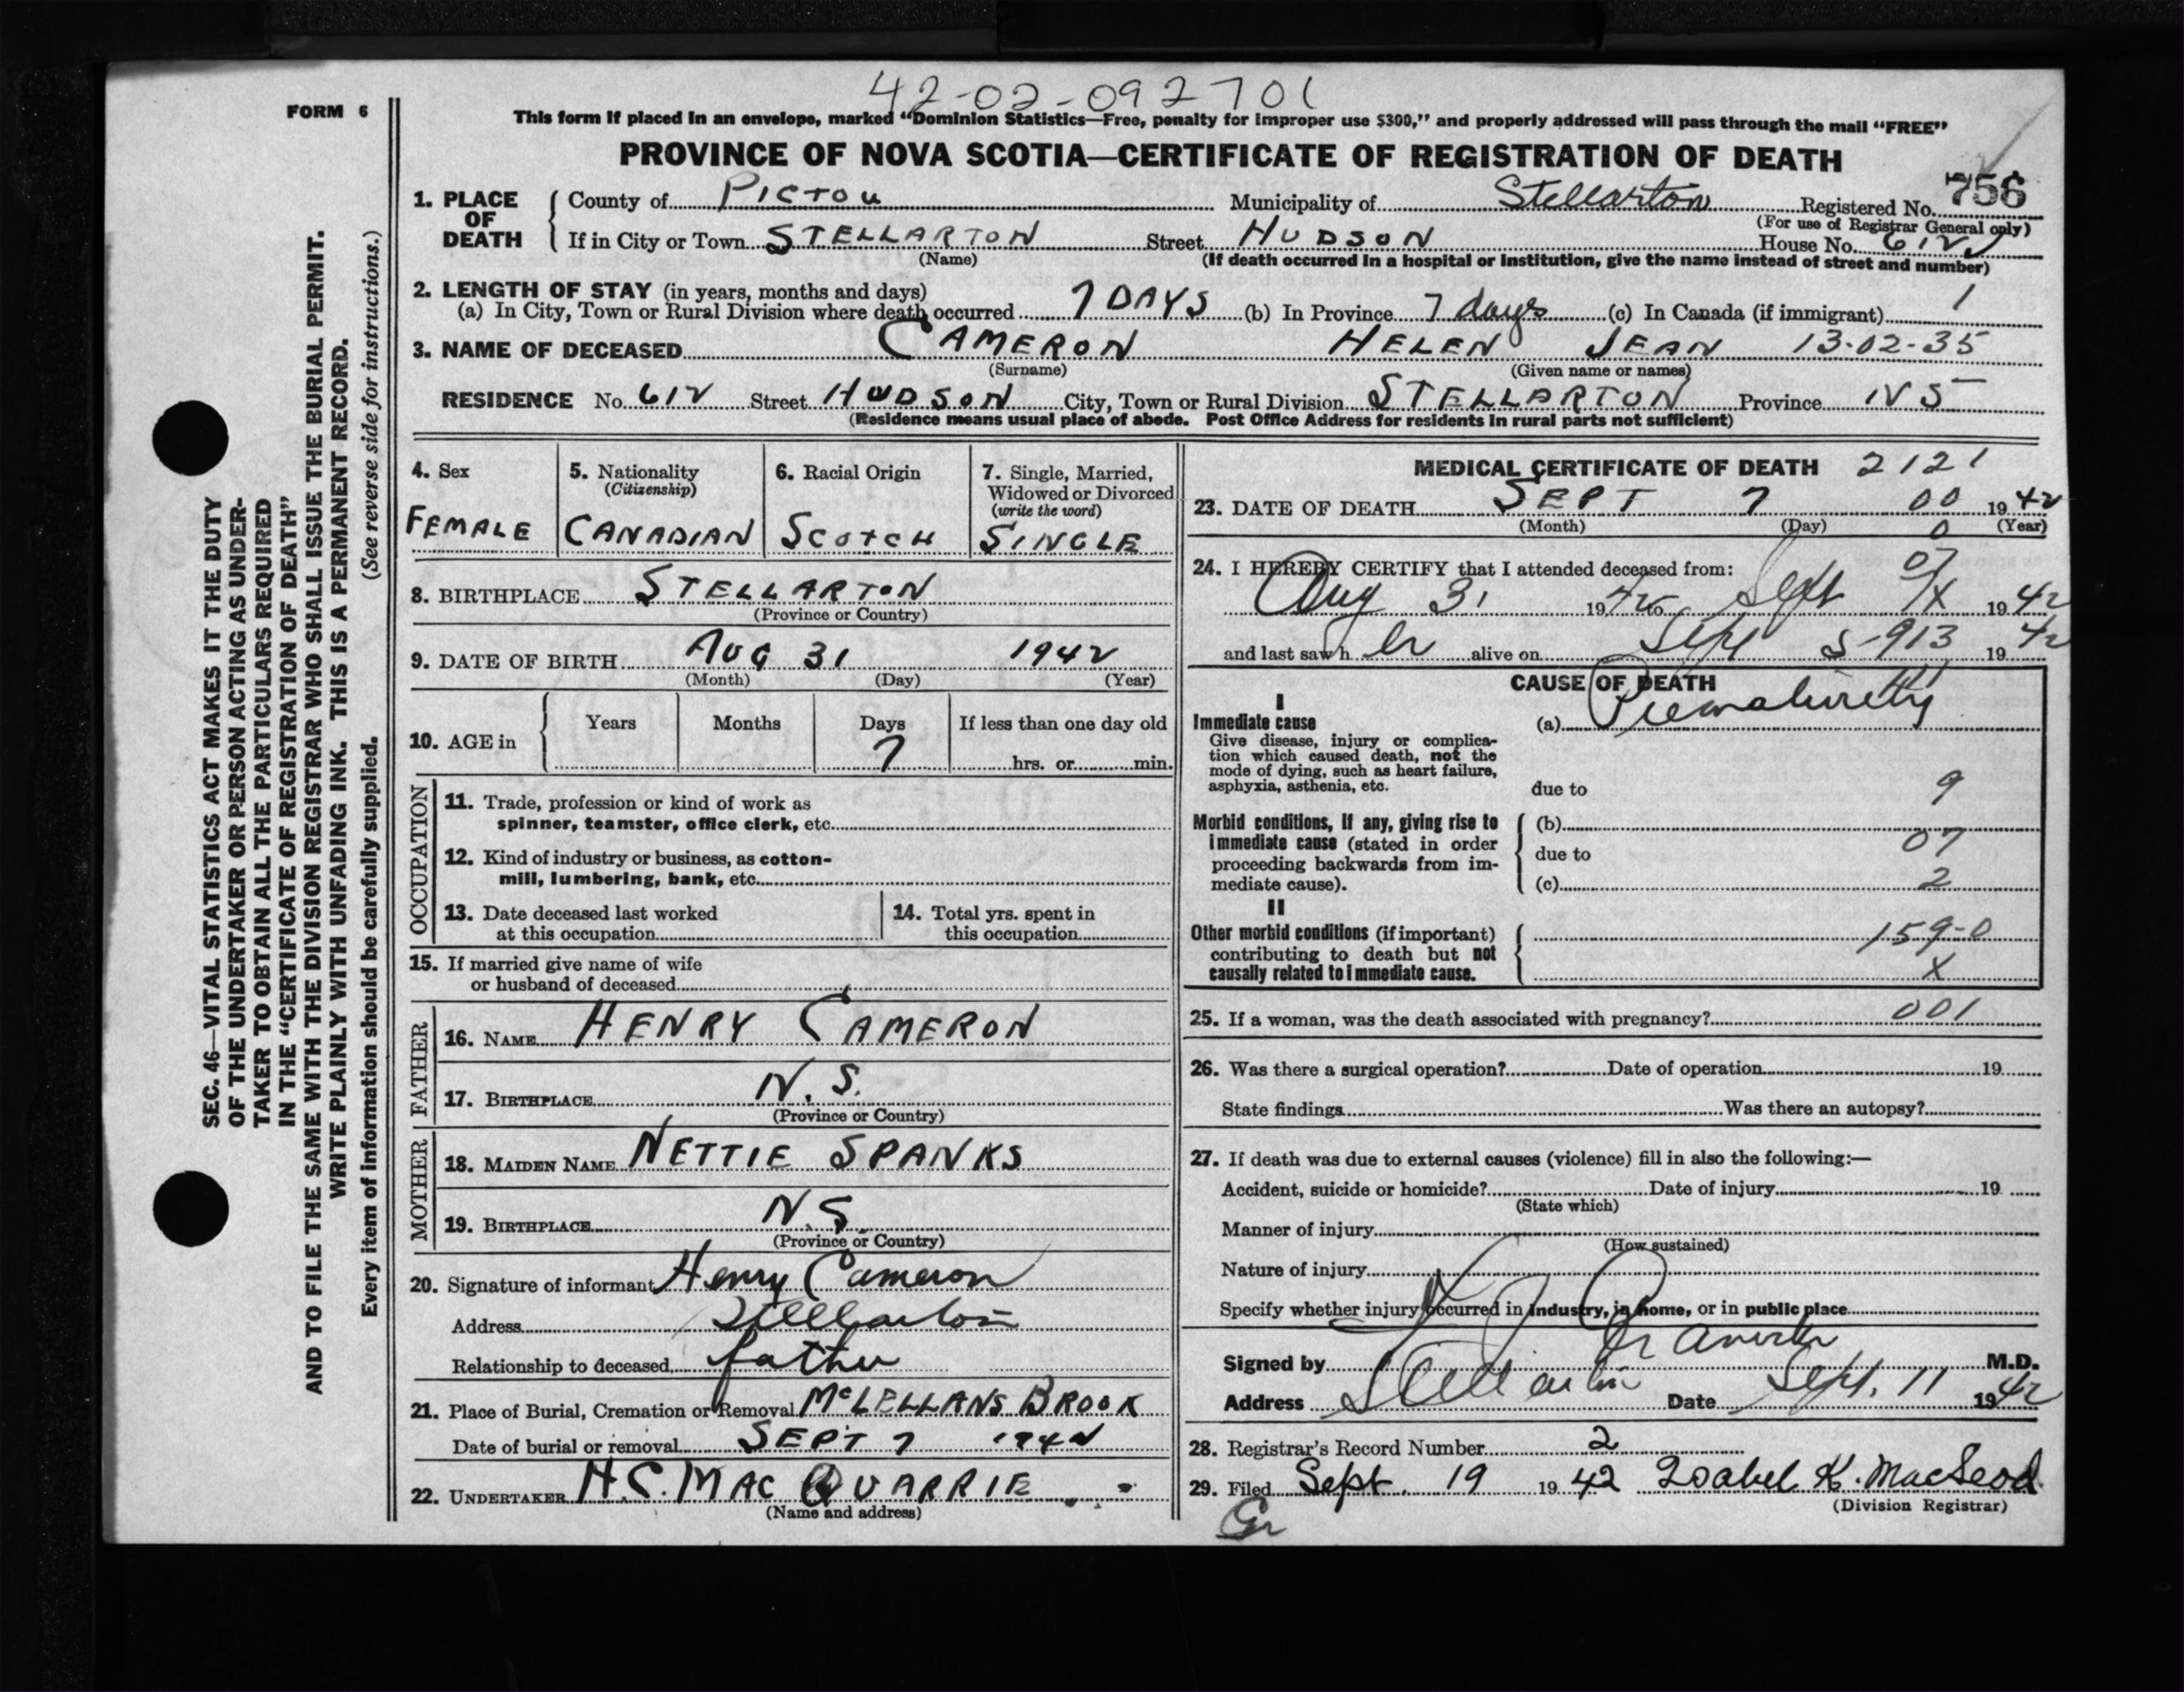 42-02-092701
FORM 6
This form if placed in an envelope, marked "Dominion Statistics—Free, penalty for improper use $300," and properly addressed will pass through the mail "FREE"
PROVINCE OF NOVA SCOTIA—CERTIFICATE OF REGISTRATION OF DEATH
756
1. PLACE OF DEATH
County of PICTOU Municipality of Stellarton Registered No.
(For use of Registrar General only)
If in City or Town STELLARTON Street HUDSON House No. 612
(Name) (If death occurred in a hospital or institution, give the name instead of street and number)
2. LENGTH OF STAY (in years, months and days)
(a) In City, Town or Rural Division where death occurred 7 DAYS (b) In Province 7 days (c) In Canada (if immigrant) 1
3. NAME OF DECEASED CAMERON HELEN JEAN 13-02-35
(Surname) (Given name or names)
RESIDENCE No. 612 Street HUDSON City, Town or Rural Division STELLARTON Province NS
(Residence means usual place of abode. Post Office Address for residents in rural parts not sufficient)
4. Sex
FEMALE
5. Nationality
(Citizenship)
CANADIAN
6. Racial Origin
SCOTCH
7. Single, Married,
Widowed or Divorced
(write the word)
SINGLE
8. BIRTHPLACE STELLARTON
(Province or Country)
9. DATE OF BIRTH AUG 31 1942
(Month) (Day) (Year)
10. AGE in
Years Months Days If less than one day old
7 hrs. or min.
OCCUPATION
11. Trade, profession or kind of work as
spinner, teamster, office clerk, etc.
12. Kind of industry or business, as cotton-
mill, lumbering, bank, etc.
13. Date deceased last worked
at this occupation
14. Total yrs. spent in
this occupation
15. If married give name of wife
or husband of deceased
FATHER
16. NAME HENRY CAMERON
17. BIRTHPLACE N.S.
(Province or Country)
MOTHER
18. MAIDEN NAME NETTIE SPANKS
19. BIRTHPLACE N.S.
(Province or Country)
20. Signature of informant Henry Cameron
Address Stellarton
Relationship to deceased father
21. Place of Burial, Cremation or Removal McLELLANS BROOK
Date of burial or removal SEPT 7 1942
22. UNDERTAKER H.C. MAC QUARRIE
(Name and address)
MEDICAL CERTIFICATE OF DEATH 2121
23. DATE OF DEATH SEPT 7 00 1942
(Month) (Day) 0 (Year)
24. I HEREBY CERTIFY that I attended deceased from:
07
Aug 31 1942 to Sept 1942
and last saw her alive on Sept 5 913 1942
CAUSE OF DEATH
I
Immediate cause
Give disease, injury or complica-
tion which caused death, not the
mode of dying, such as heart failure,
asphyxia, asthenia, etc.
(a) Prematurity
due to 9
Morbid conditions, if any, giving rise to
immediate cause (stated in order
proceeding backwards from im-
mediate cause).
(b)
due to 07
(c) 2
II
Other morbid conditions (if important)
contributing to death but not
causally related to immediate cause.
159-0
X
25. If a woman, was the death associated with pregnancy? 001
26. Was there a surgical operation? Date of operation 19
State findings Was there an autopsy?
27. If death was due to external causes (violence) fill in also the following:—
Accident, suicide or homicide? Date of injury 19
(State which)
Manner of injury
(How sustained)
Nature of injury
Specify whether injury occurred in industry, in home, or in public place
Signed by M.D.
Address Stellarton Date Sept. 11 1942
28. Registrar's Record Number 2
29. Filed Sept. 19 1942 Isabel K. MacLeod
(Division Registrar)
SEC. 46—VITAL STATISTICS ACT MAKES IT THE DUTY
OF THE UNDERTAKER OR PERSON ACTING AS UNDER-
TAKER TO OBTAIN ALL THE PARTICULARS REQUIRED
IN THE "CERTIFICATE OF REGISTRATION OF DEATH"
AND TO FILE THE SAME WITH THE DIVISION REGISTRAR WHO SHALL ISSUE THE BURIAL PERMIT.
WRITE PLAINLY WITH UNFADING INK. THIS IS A PERMANENT RECORD.
Every item of information should be carefully supplied. (See reverse side for instructions.)